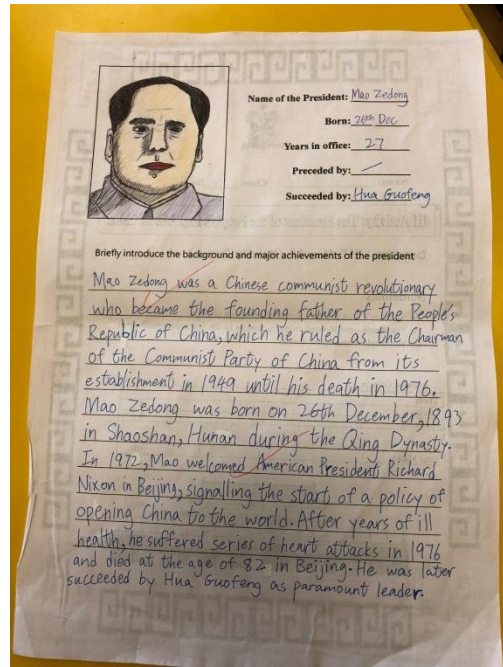 Name of the President: Mao Zedong
Born: 26th Dec
Years in office: 27
Preceded by: /
Succeeded by: Hua Guofeng
Briefly introduce the background and major achievements of the president
Mao Zedong was a Chinese communist revolutionary
who became the founding father of the People's
Republic of China, which he ruled as the Chairman
of the Communist Party of China from its
establishment in 1949 until his death in 1976.
Mao Zedong was born on 26th December, 1893
in Shaoshan, Hunan during the Qing Dynasty.
In 1972, Mao welcomed American President Richard
Nixon in Beijing, signalling the start of a policy of
opening China to the world. After years of ill
health, he suffered series of heart attacks in 1976
and died at the age of 82 in Beijing. He was later
succeeded by Hua Guofeng as paramount leader.